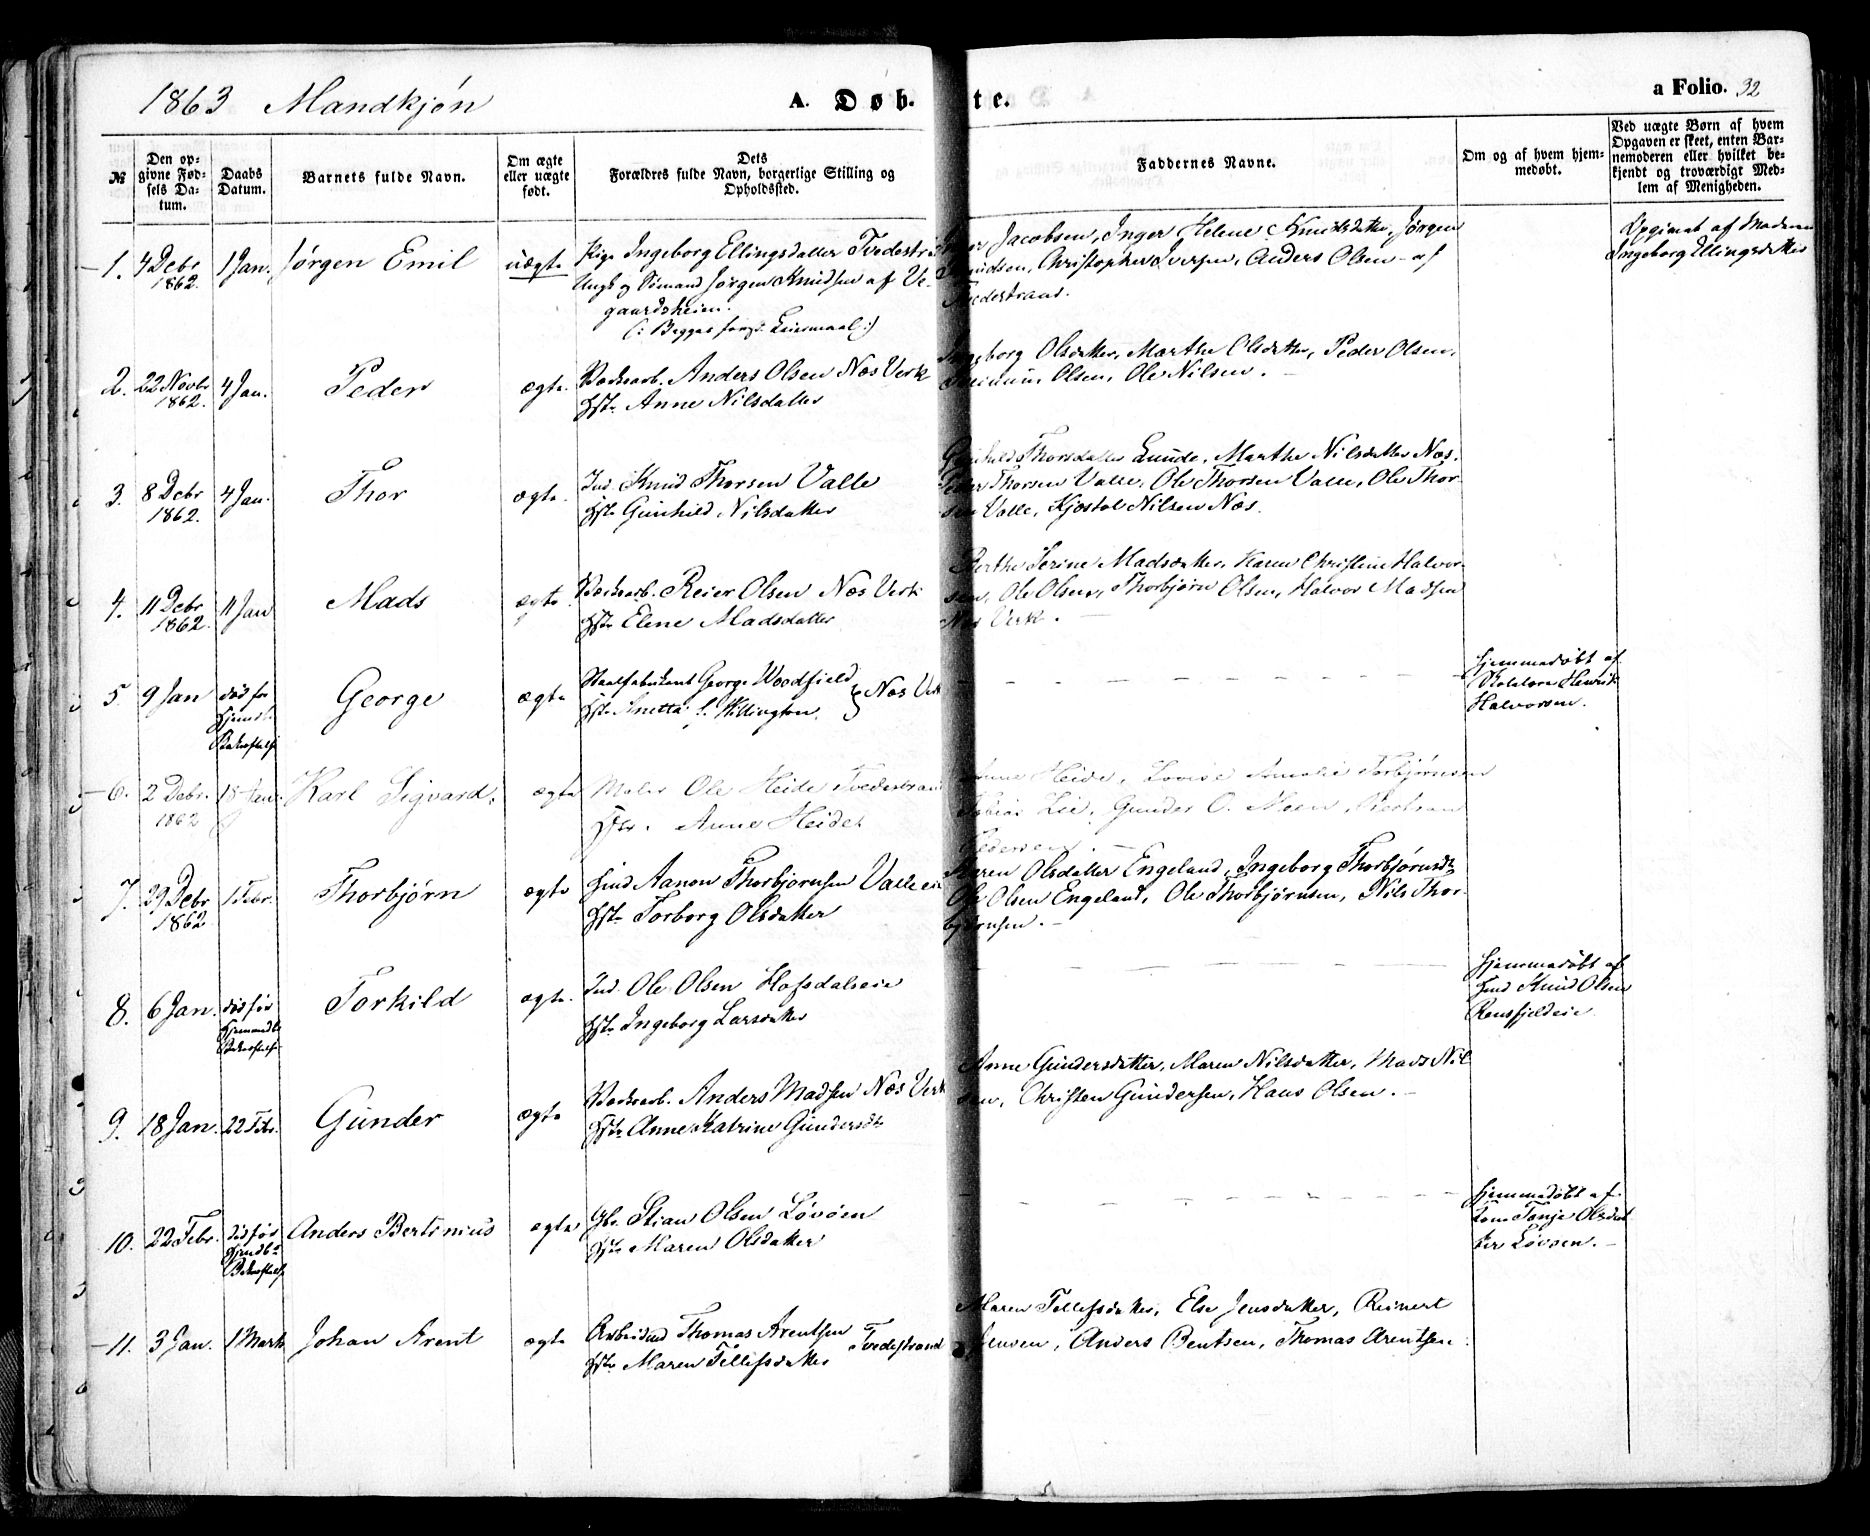 1863 Mandkjøn
A. Døb-
te.
a Folio. 32
№
Den op-
givne Fød-
sels Da-
tum.
Daabs
Datum.
Barnets fulde Navn.
Om ægte
eller uægte
født.
Dets
Forældres fulde Navn, borgerlige Stilling og
Opholdssted.
Faddernes Navne.
Om og af hvem hjem-
medøbt.
Ved uægte Børn af hvem
Opgaven er skeet, enten Bar-
nemoderen eller hvilket be-
kjendt og troværdigt Med-
lem af Menigheden.
1. 4 Debr 1 Jan. Jørgen Emil uægte Pige Ingeborg Ellingsdatter Tvedestr
1862.
Ungk og Sømand Jørgen Knudsen af Ve-
gaardsheien.
(: Begges første Leiermaal :)
Jacobsen, Inger Helene Knudsdatter, Jørgen
Knudsen, Christopher Iversen, Anders Olsen - af
Tvedestrand.
Opgivet af Moderen
Ingeborg Ellingsdatter
2. 22 Novbr 4 Jan. Peder ægte. Værksarb. Anders Olsen Næs Verk
1862.
Hstr Anne Nilsdatter
Ingeborg Olsdatter, Marthe Olsdatter, Peder Olsen,
Olsen, Ole Nilsen.
3. 8 Debr 4 Jan. Thor ægte. Ind. Knud Thorsen Valle
1862.
Hstr Gunhild Nilsdatter
Gunhild Thorsdatter Lunde, Marthe Nilsdatter Næs,
Peder Thorsen Valle, Ole Thorsen Valle, Ole Thor-
sen Valle, Kjøstol Nilsen Næs.
4. 11 Debr 11 Jan Mads ægte Værksarb. Reier Olsen Næs Verk
1862.
Hstr Elene Madsdatter
Berthe Serine Madsdatter, Karen Christine Halvor-
sen, Ole Olsen, Thorbjørn Olsen, Halvor Madsen
Næs Verk.
5 9 Jan død før
Hjemdb.
Bekræftelse
George ægte Staalfabrikant George Woodfield
Hstr Anetta f. Willington. } Næs Verk
Hjemmedøbt af
Henrik
Halvorsen.
6. 2 Debr. 18 Jan. Karl Sigvard. ægte Maler Ole Heide Tvedestrand
1862
Hstr. Anne Heide
Anne Heide, Lovise Amalie Torbjørnsen
Tobias Lie, Gunder O. Moen,
Pedersen.
7. 29 Debr 1 Febr. Thorbjørn ægte Hmd Aanon Thorbjørnsen Valle eie
1862
Hstr Torborg Olsdatter
Karen Olsdatter Engeland, Ingeborg Thorbjørnsdtr
Ole Olsen Engeland, Ole Thorbjørnsen, Nils Thor-
bjørnsen.
8. 6 Jan. død før
Hjemmedb
Bekræftelse
Torkild ægte. Ind. Ole Olsen Hofsdaleie
Hstr Ingeborg Larsdatter
Hjemmedøbt af
Hmd Knud Olsen
Ransfjeldeie
9. 18 Jan. 22 Febr. Gunder ægte Værksarb. Anders Madsen Næs Verk
Hstr Anne Katrine Gundersdtr
Anne Gundersdatter, Maren Nilsdatter, Mads Nil-
sen, Christen Gundersen, Hans Olsen.
10. 22 Febr. død før
Hjemdb
Bekræftelse
Anders Bertinius ægte Gbr. Stian Olsen Løvøen
Hstr Maren Olsdatter
Hjemmedøbt af
Kone Tonje Olsdat-
ter Løvøen.
11. 3 Jan. 1 Marts Johan Arent ægte Arbeidsmd Thomas Arentsen
Hstr Maren Tellefsdatter
Tvedestrand
Maren Tellefsdatter, Else Jensdatter, Reinert
Jensen, Anders Bentsen, Thomas Arentsen.